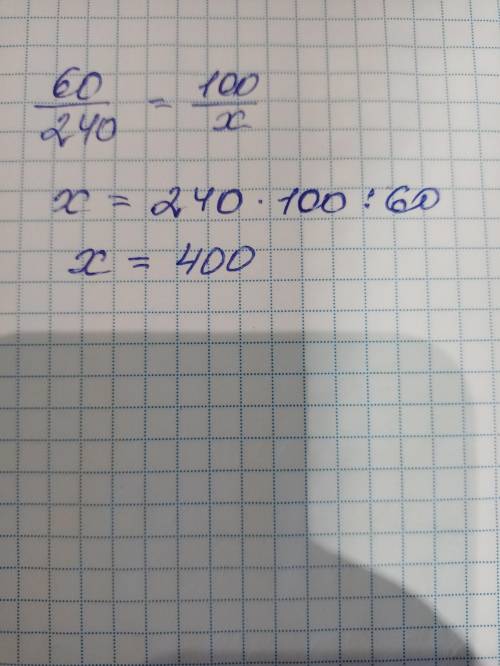 60/240 = 100/x
x = 240 · 100 : 60
x = 400